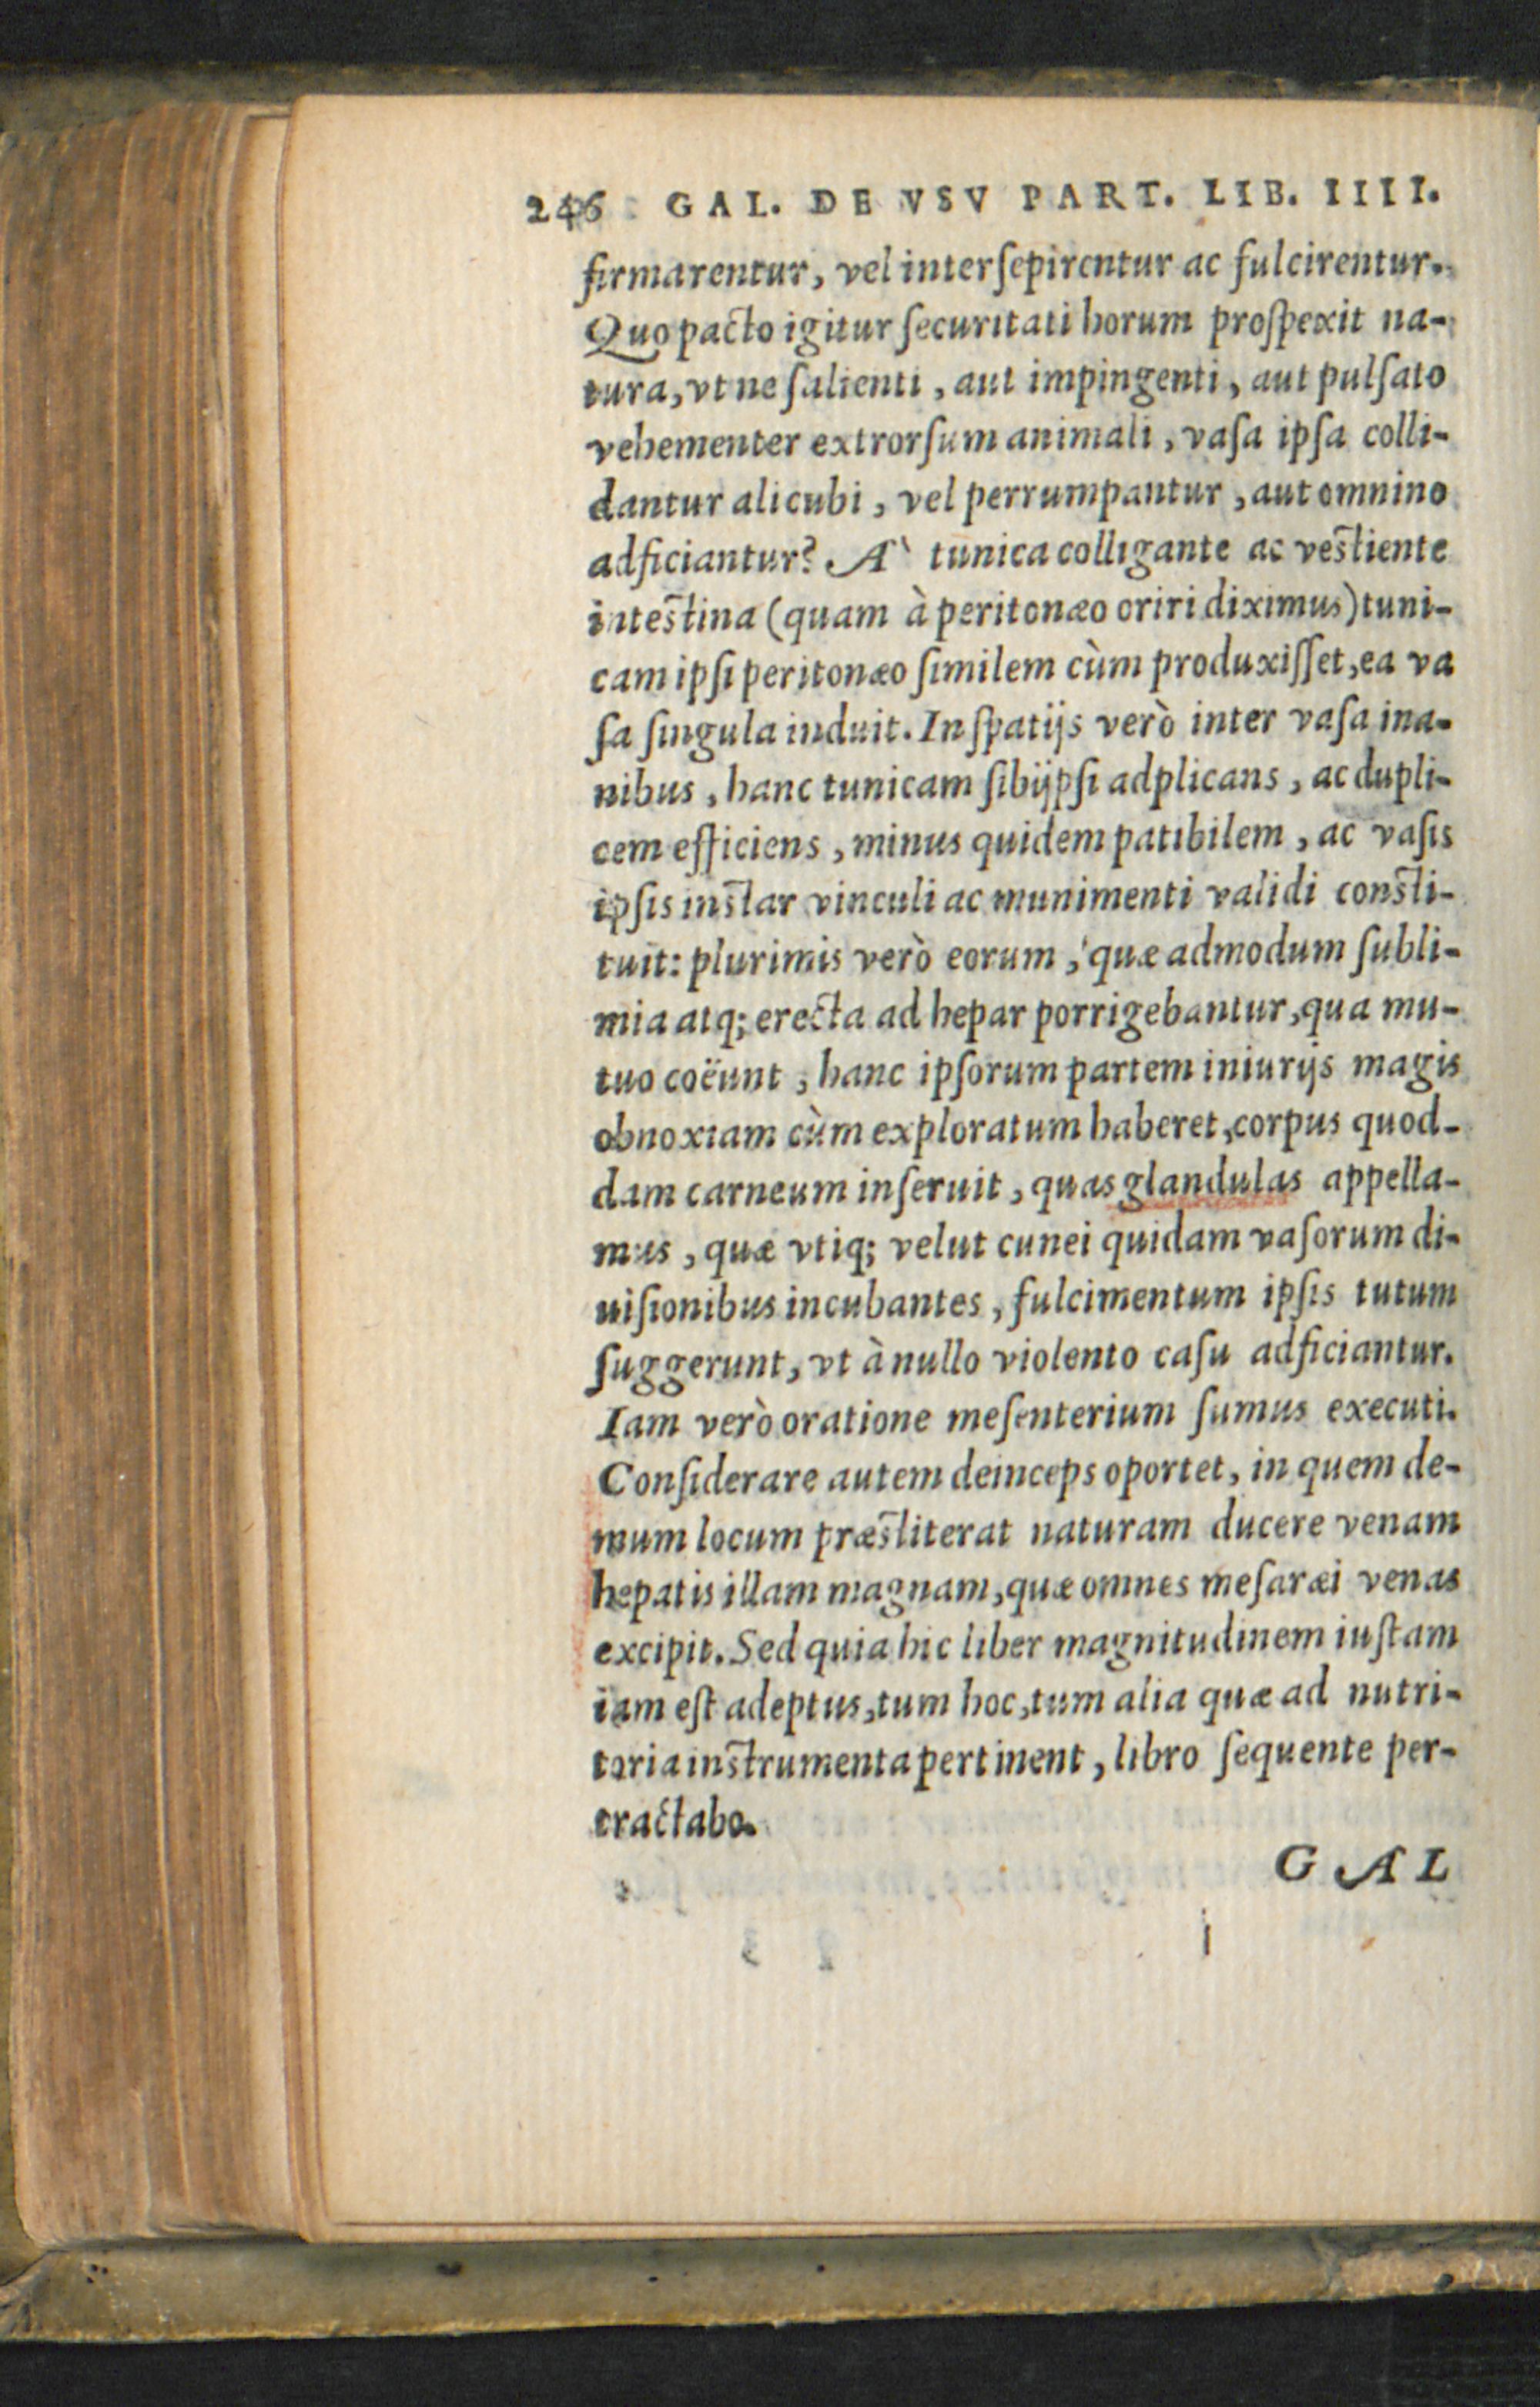 246 GAL. DE VSV PART. LIB. IIII.
firmarentur, vel interſepirentur ac fulcirentur.
Quo pacto igitur ſecuritati horum proſpexit na-
tura, vt ne ſalienti, aut impingenti, aut pulſato
vehementer extrorſum animali, vaſa ipſa colli-
dantur alicubi, vel perrumpantur, aut omnino
adficiantur? A` tunica colligante ac veſtiente
inteſtina (quam à peritonæo oriri diximus) tuni-
cam ipſi peritonæo ſimilem cùm produxiſſet, ea va
ſa ſingula induit. In ſpatijs verò inter vaſa ina-
nibus, hanc tunicam ſibijpſi adplicans, ac dupli-
cem efficiens, minus quidem patibilem, ac vaſis
ipſis inſtar vinculi ac munimenti validi conſti-
tuit: plurimis verò eorum, quæ admodum ſubli-
mia atq; erecta ad hepar porrigebantur, qua mu-
tuo coëunt, hanc ipſorum partem iniurijs magis
obnoxiam cùm exploratum haberet, corpus quod-
dam carneum inſeruit, quas glandulas appella-
mus, quæ vtiq; velut cunei quidam vaſorum di-
uiſionibus incubantes, fulcimentum ipſis tutum
ſuggerunt, vt à nullo violento caſu adficiantur.
Iam verò oratione meſenterium ſumus executi.
Conſiderare autem deinceps oportet, in quem de-
mum locum præſtiterat naturam ducere venam
hepatis illam magnam, quæ omnes meſaræi venas
excipit. Sed quia hic liber magnitudinem iuſtam
iam eſt adeptus, tum hoc, tum alia quæ ad nutri-
toria inſtrumenta pertinent, libro ſequente per-
tractabo.
GAL